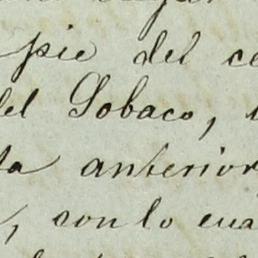 pie del ce
del Sobaco,
ta anterior
, con lo cua